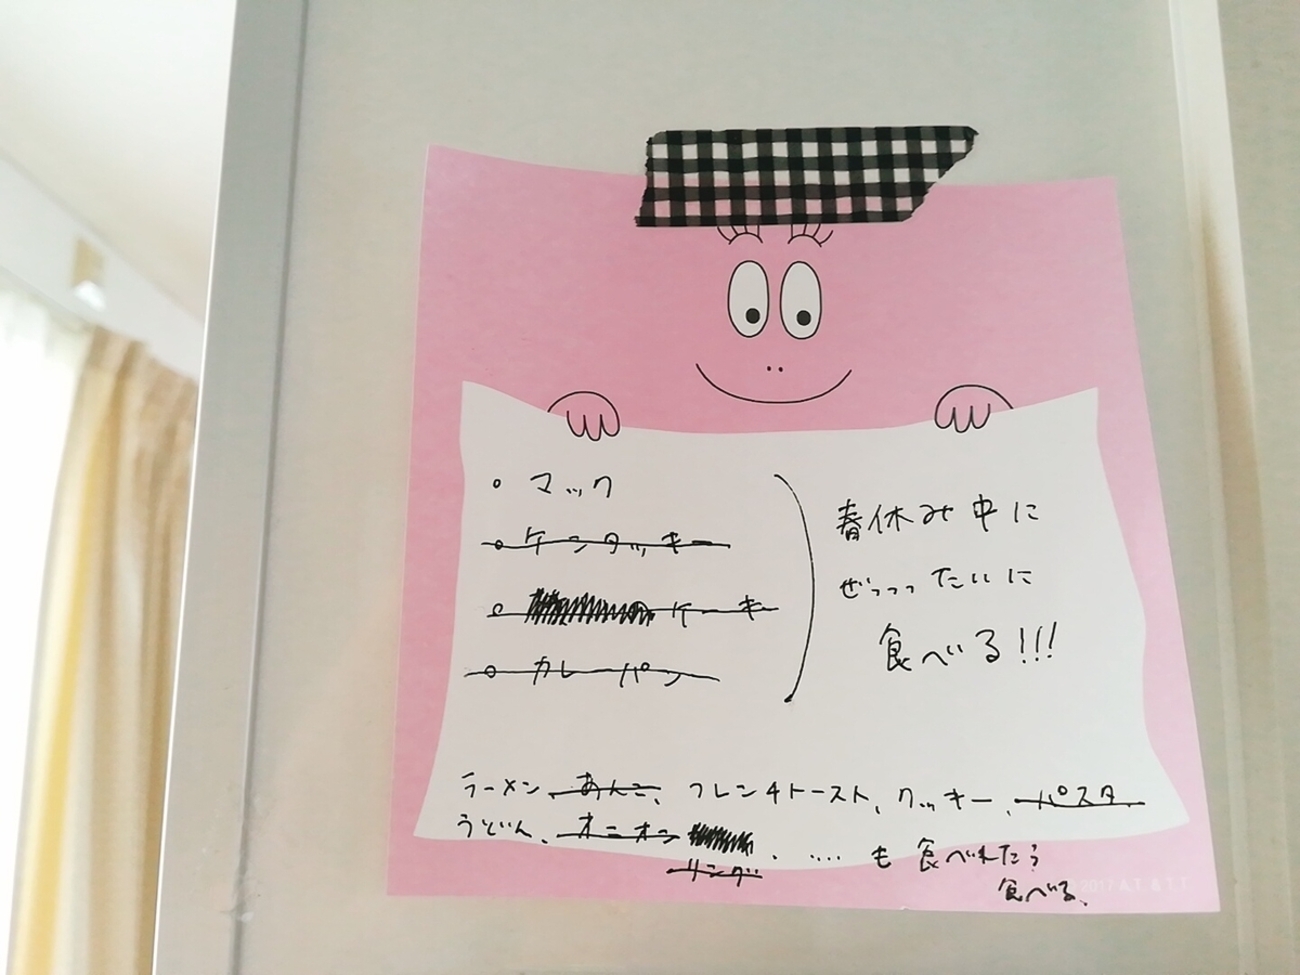 。マック
。ケンタッキー
。ケーキ
。カレーパン
春休み中に
ぜっっったいに
食べる!!!
ラーメン、あんこ、フレンチトースト、クッキー、パスタ
うどん、オニオン
リング、....も食べれたら
食べる。
2017 A.T. & T.T.